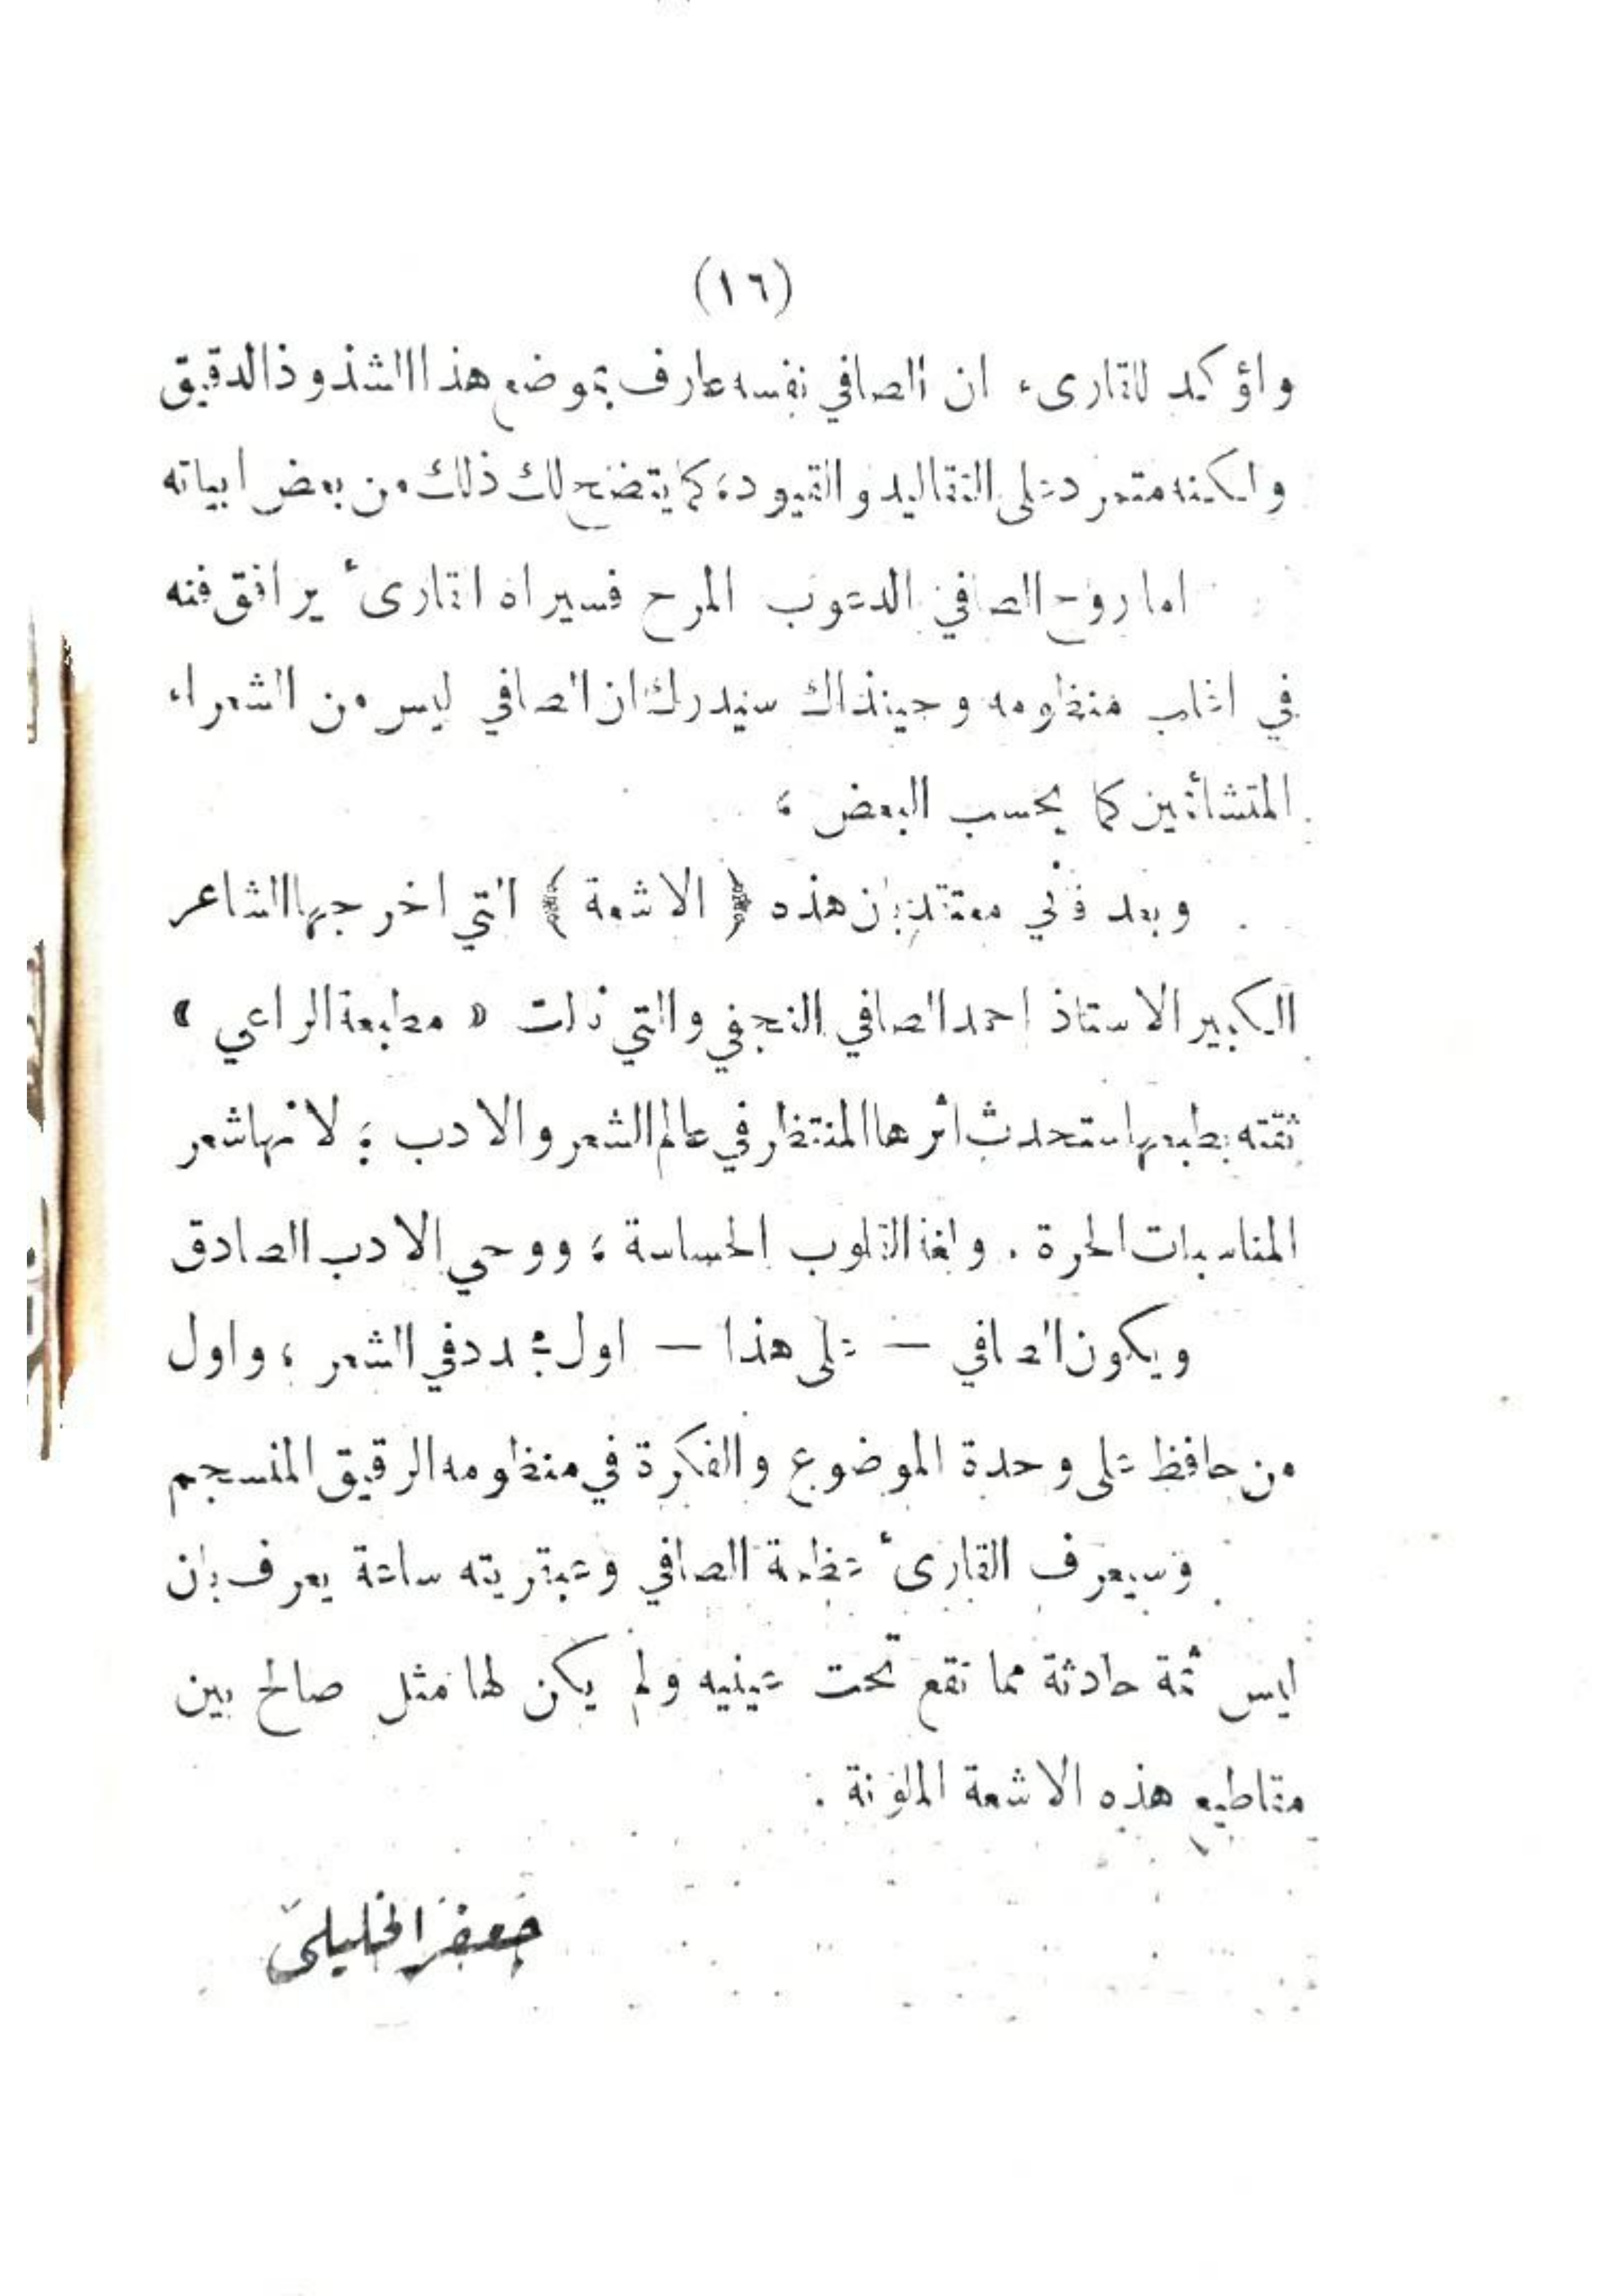 (١٦)
واؤكد للقارىء ان الصافي نفسه عارف بموضع هذا الشذوذ الدقيق
ولكنه متمرد على التقاليد والقيود، كما يتضح لك ذلك من بعض ابياته
اما روح الصافي الدعوب المرح فسيراه القارئ يرافق فنه
في اغلب منظومه وحينذاك سيدرك ان الصافي ليس من الشعراء
المتشائمين كما يحسب البعض ؛
وبعد فاني معتقد بان هذه ﴿ الاشعة ﴾ التي اخرجها الشاعر
الكبير الاستاذ احمد الصافي النجفي والتي نالت « مطبعة الراعي »
ثقته بطبعها ستحدث اثرها المنتظر في عالم الشعر والادب ؛ لانها شعر
المناسبات الحرة . ولغة القلوب الحساسة ؛ ووحي الادب الصادق
ويكون الصافي — على هذا — اول مجدد في الشعر ، واول
من حافظ على وحدة الموضوع والفكرة في منظومه الرقيق المنسجم
وسيعرف القارئ عظمة الصافي وعبقريته ساعة يعرف بان
ليس ثمة حادثة مما تقع تحت عينيه ولم يكن لها مثل صالح بين
مقاطيع هذه الاشعة الملونة .
جعفر الخليلي